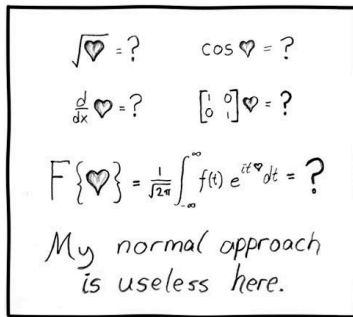 √♥ = ? cos ♥ = ?
d/dx ♥ = ? [1 0
0 1] ♥ = ?
F{♥} = 1/√2π ∫_{-∞}^{∞} f(t) e^{it♥} dt = ?
My normal approach
is useless here.